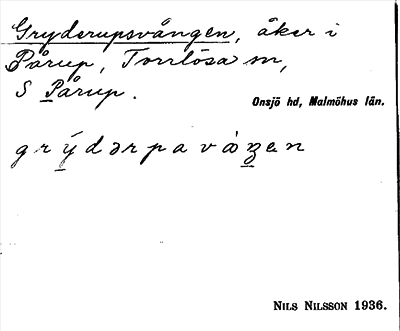 Gryderupsvången, åker i
Pårup, Torrlösa sn,
S Pårup.
Onsjö hd, Malmöhus län.
grýdərpavàŋən
NILS NILSSON 1936.